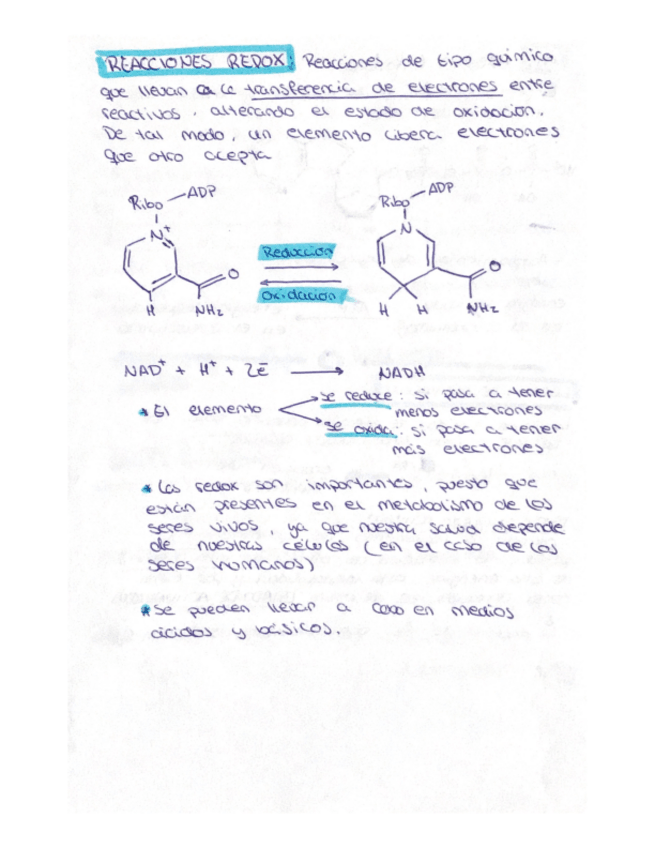 REACCIONES REDOX: Reacciones de tipo químico
que llevan a la transferencia de electrones entre
reactivos, alterando el estado de oxidación.
De tal modo, un elemento libera electrones
que otro acepta
Ribo — ADP
N+
H
O
NH2
Reducción
Oxidación
Ribo — ADP
N
H H
O
NH2
NAD+ + H+ + 2ē → NADH
* El elemento
se reduce: si pasa a tener
menos electrones
se oxida: si pasa a tener
más electrones
* Las redox son importantes, puesto que
están presentes en el metabolismo de los
seres vivos, ya que nuestra salud depende
de nuestras células (en el caso de los
seres humanos)
* Se pueden llevar a cabo en medios
ácidos y básicos.